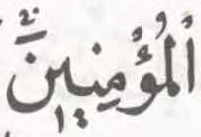 الْمُؤْمِنِينَ